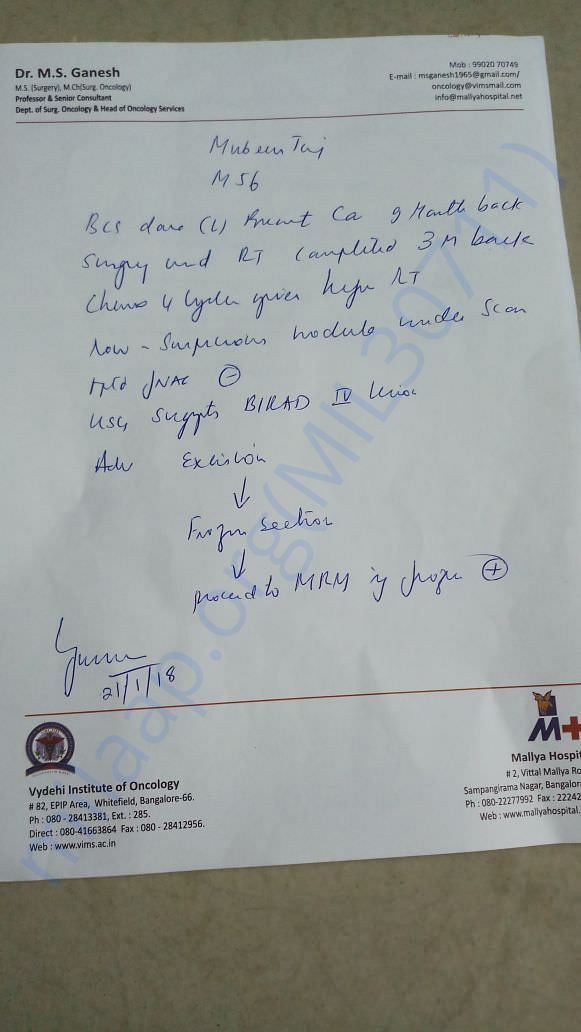 Dr. M.S. Ganesh
M.S. (Surgery), M.Ch(Surg. Oncology)
Professor & Senior Consultant
Dept. of Surg. Oncology & Head of Oncology Services
Mob : 99020 70749
E-mail : msganesh1965@gmail.com/
oncology@vimsmail.com
info@mallyahospital.net
Mubeen Taj
M 56
BCS done (L) Breast Ca 9 Month back
Surgery and RT completed 3 M back
Chemo 4 Cycles given before RT
Now - Suspicious nodule under Scar
FNAC ⊖
USG suggests BIRAD IV lesion
Adv Excision
↓
Frozen Section
↓
proceed to MRM if frozen ⊕
21/1/18
milaap.org(MIL307111)
Vydehi Institute of Oncology
# 82, EPIP Area, Whitefield, Bangalore-66.
Ph : 080 - 28413381, Ext. : 285.
Direct : 080-41663864 Fax : 080 - 28412956.
Web : www.vims.ac.in
M+
Mallya Hospit
# 2, Vittal Mallya Ro
Sampangirama Nagar, Bangalor
Ph : 080-22277992 Fax : 22242
Web : www.mallyahospital.